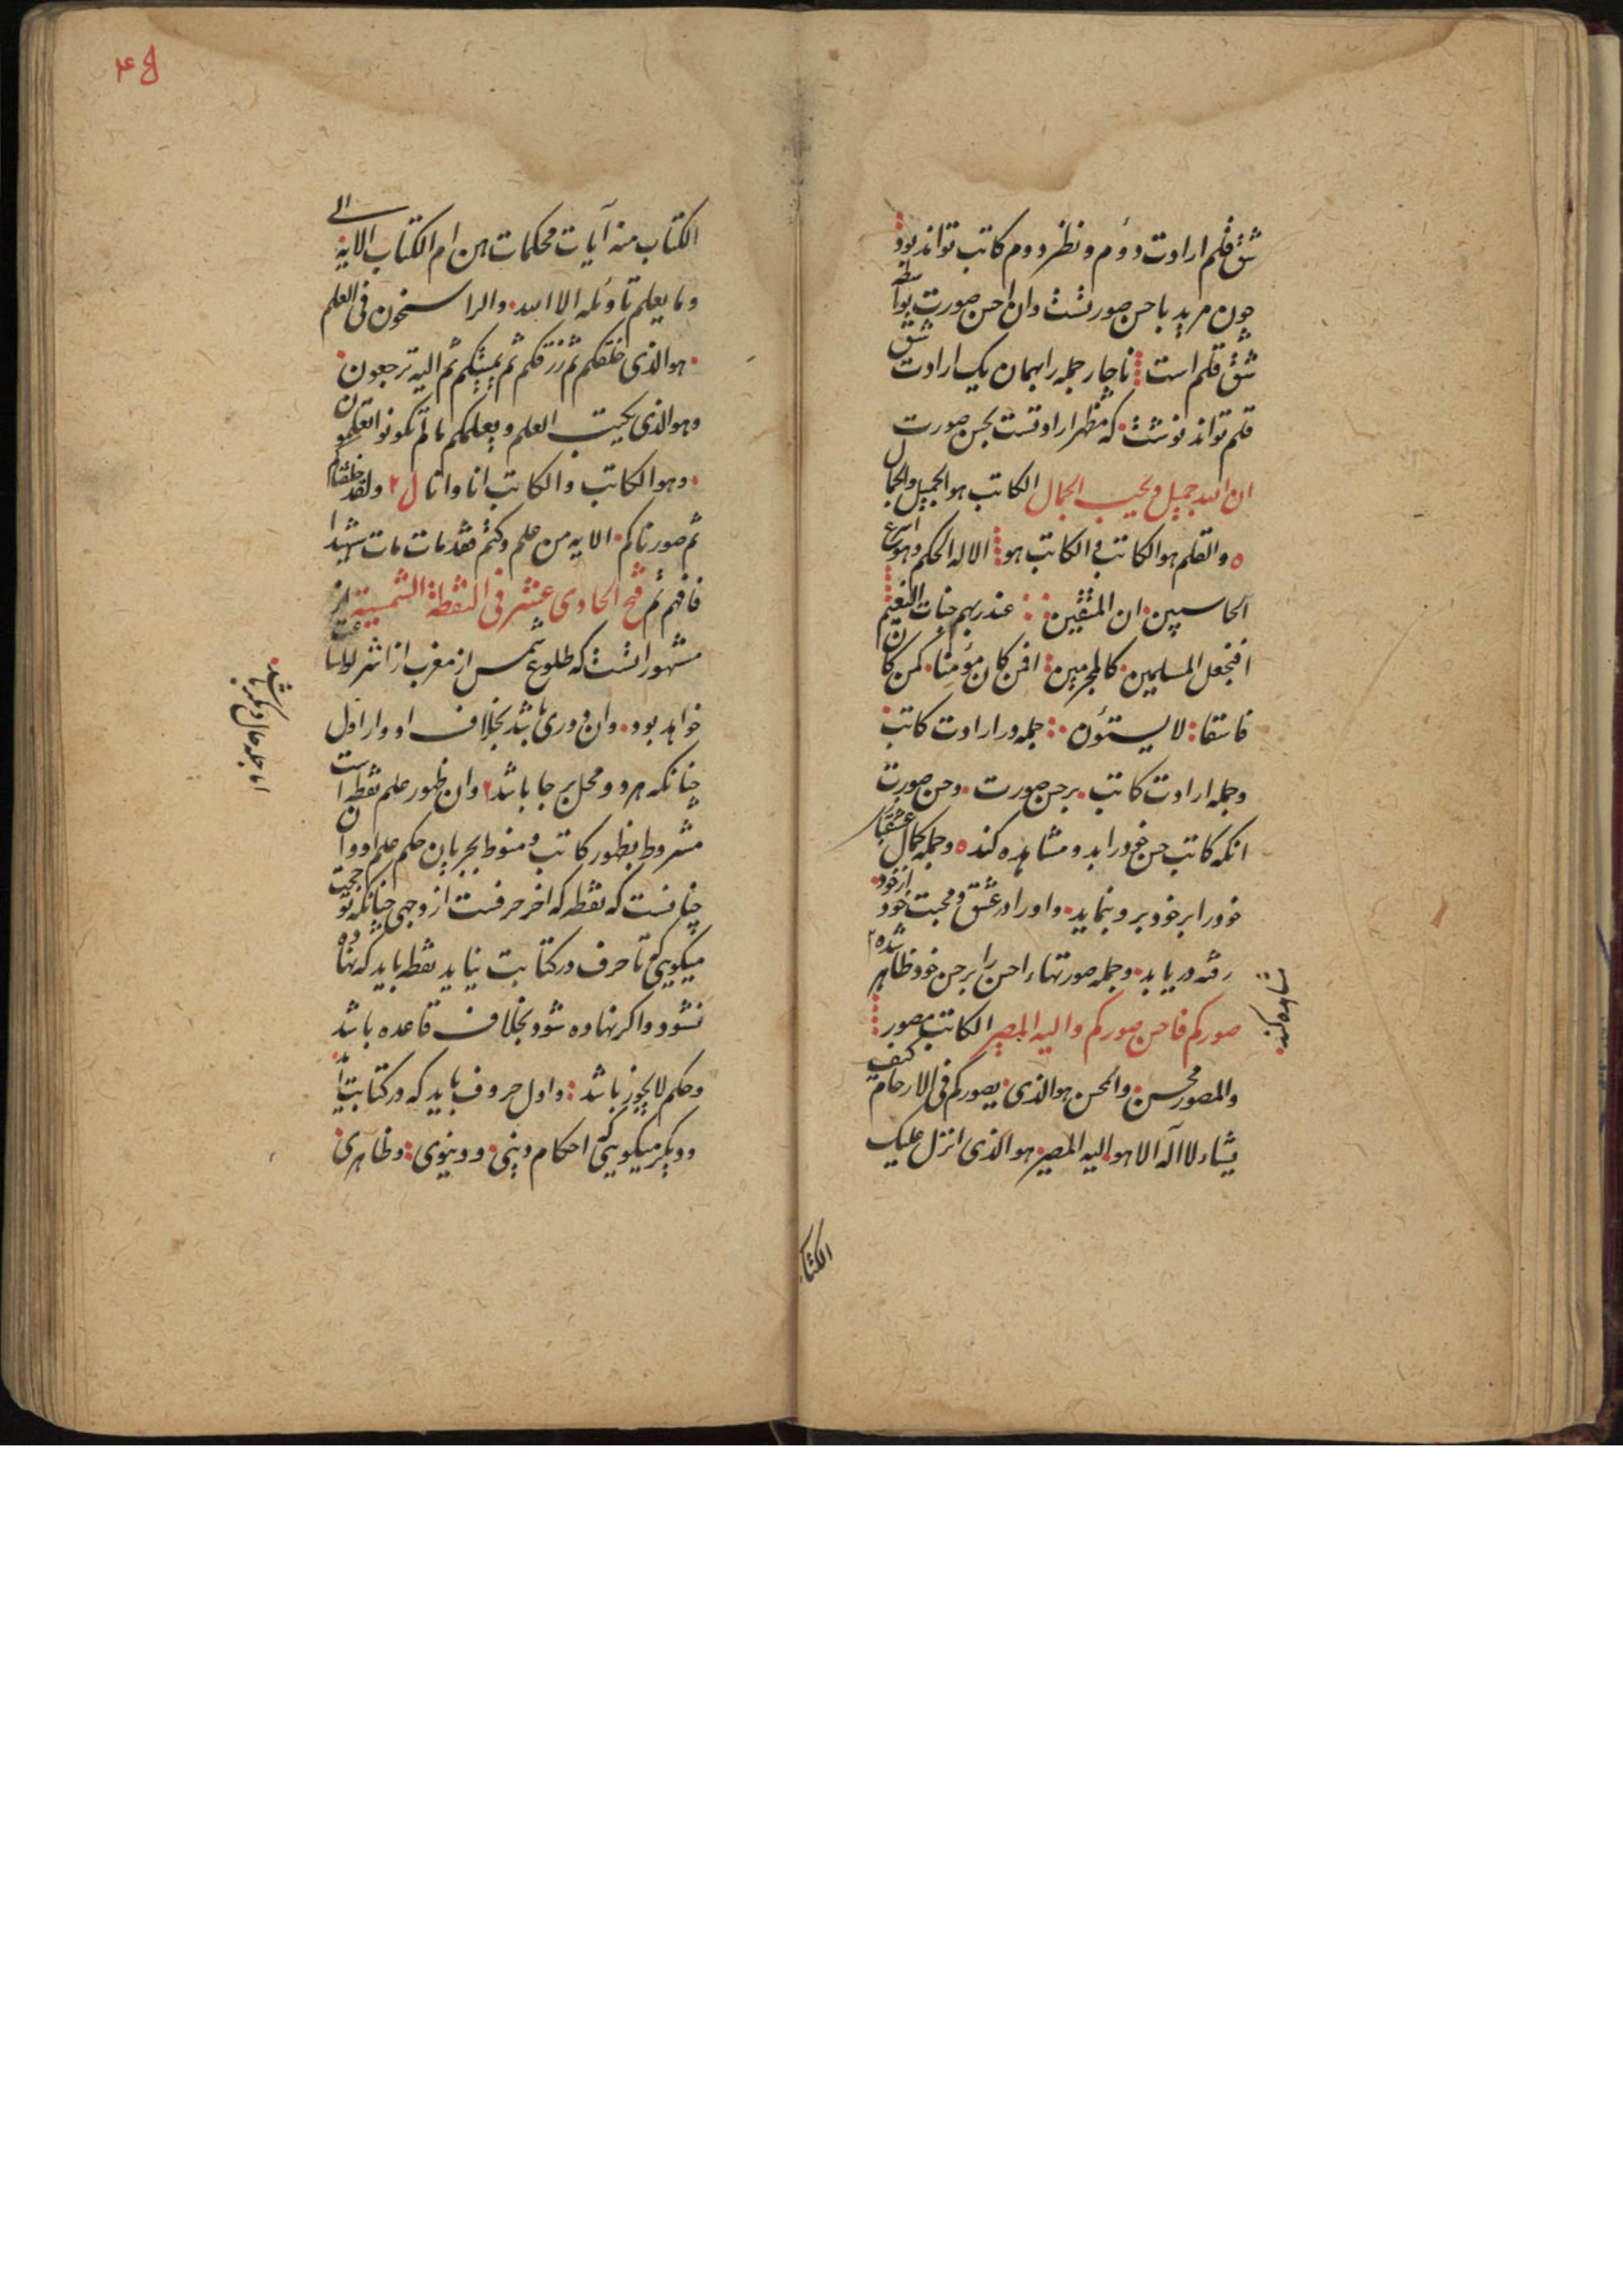 شق قلم ارادت دوم ونظر دوم كاتب تواند بود
چون مريد باحسن صورتست وان احسن صورت بواسطه
شق قلم است ناچار جمله را بهمان يك ارادت شق
قلم تواند نوشت كه مظهر ارادتست بحسن صورت
ان الله جميل ويحب الجمال الكاتب هو الجميل والجمال
والقلم هو الكاتب والكاتب هو الا له الحكم وهو اسرع
الحاسبين ان للمتقين عند ربهم جنات النعيم
افنجعل المسلمين كالمجرمين افمن كان مؤمنا كمن كان
فاسقا لا يستؤن جمله در ارادت كاتب
وجمله ارادت كاتب بر حسن صورت وحسن صورت
انكه كاتب حسن خود را بدو مشاهده كند وجمله كمال عشقبا
خود را بر خود برو بنمايد واو را در عشق و محبت خود از خود
رفته دريابد وجمله صورتهاء احسن را بر حسن خود ظاهر شده
مشاهده كند
صوركم فاحسن صوركم واليه المصير الكاتب مصور
والمصور محسن والمحسن هو الذى يصوركم فى الارحام كيف
يشاء لا اله الا هو اليه المصير هو الذى انزل عليك
الكتاب
۴۵
الكتاب منه آيات محكمات هن ام الكتاب الايه الى
وما يعلم تاويله الا الله والراسخون فى العلم
هو الذى خلقكم ثم رزقكم ثم يميتكم ثم اليه ترجعون
وهو الذى يحب العلم ويعلمكم ما لم تكونوا تعلمون
وهو الكاتب والكاتب انا وانا ل ٢ ولقد خلقناكم
ثم صورناكم الايه من علم وكتم فقد مات مات شهيدا
فافهم ثم فتح الحادى عشر فى النقطة الشمسية از
مشهور است كه طلوع شمس از مغرب از اشراط ساعت
خواهد بود وان دورى باشد بخلاف ادوار اول
اما جمله حال ديگر باشد
چنانكه هر دو محل بر جا باشد وان ظهور علم نقطه است
مشروط بظهور كاتب ومنوط بجريان حكم علم او وان
چنانست كه نقطه كه اخر حرفست از وجهى چنانكه تو حجت
ميكويى كه تا حرف در كتابت نيايد نقطه بايد كه نهاده
نشود واكر نهاده شود بخلاف قاعده باشد
وحكم لا يجوز باشد واول حروف بايد كه در كتابت آيد
و ديكر ميكويى كه احكام دينى ودنيوى وظاهرى